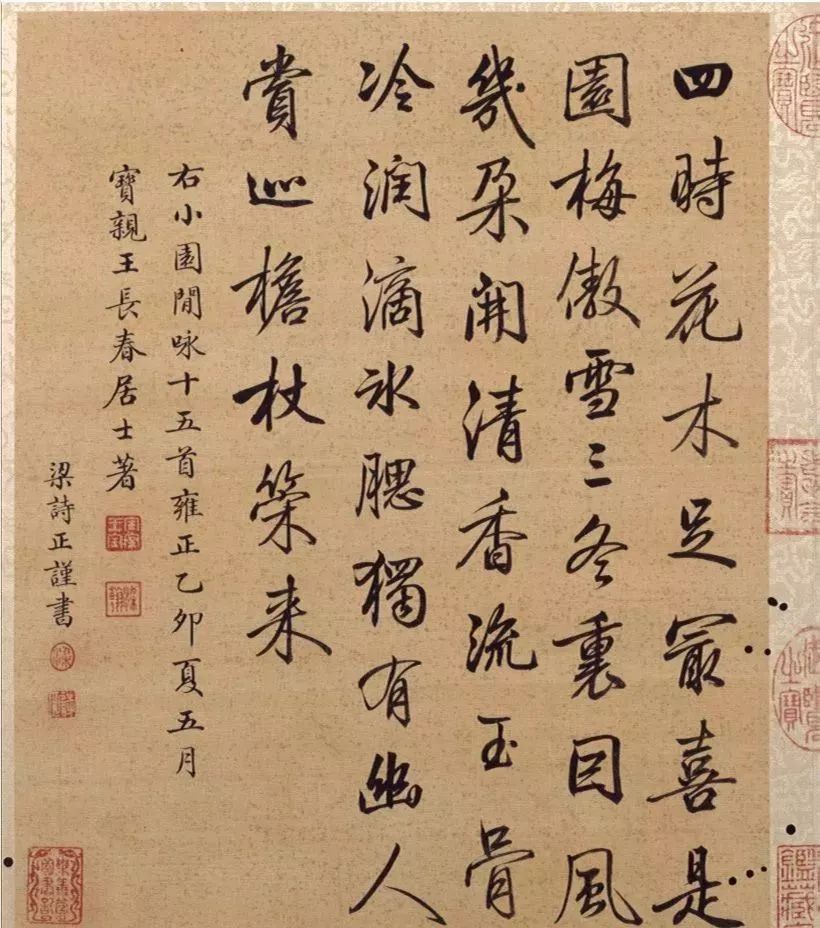 四時花木足冣喜是
園梅傲雪三冬裏因風
幾朶開清香流玉骨
冷潤滴冰腮獨有幽人
賞巡檐杖策来
右小園閒咏十五首雍正乙卯夏五月
寶親王長春居士著
梁詩正謹書